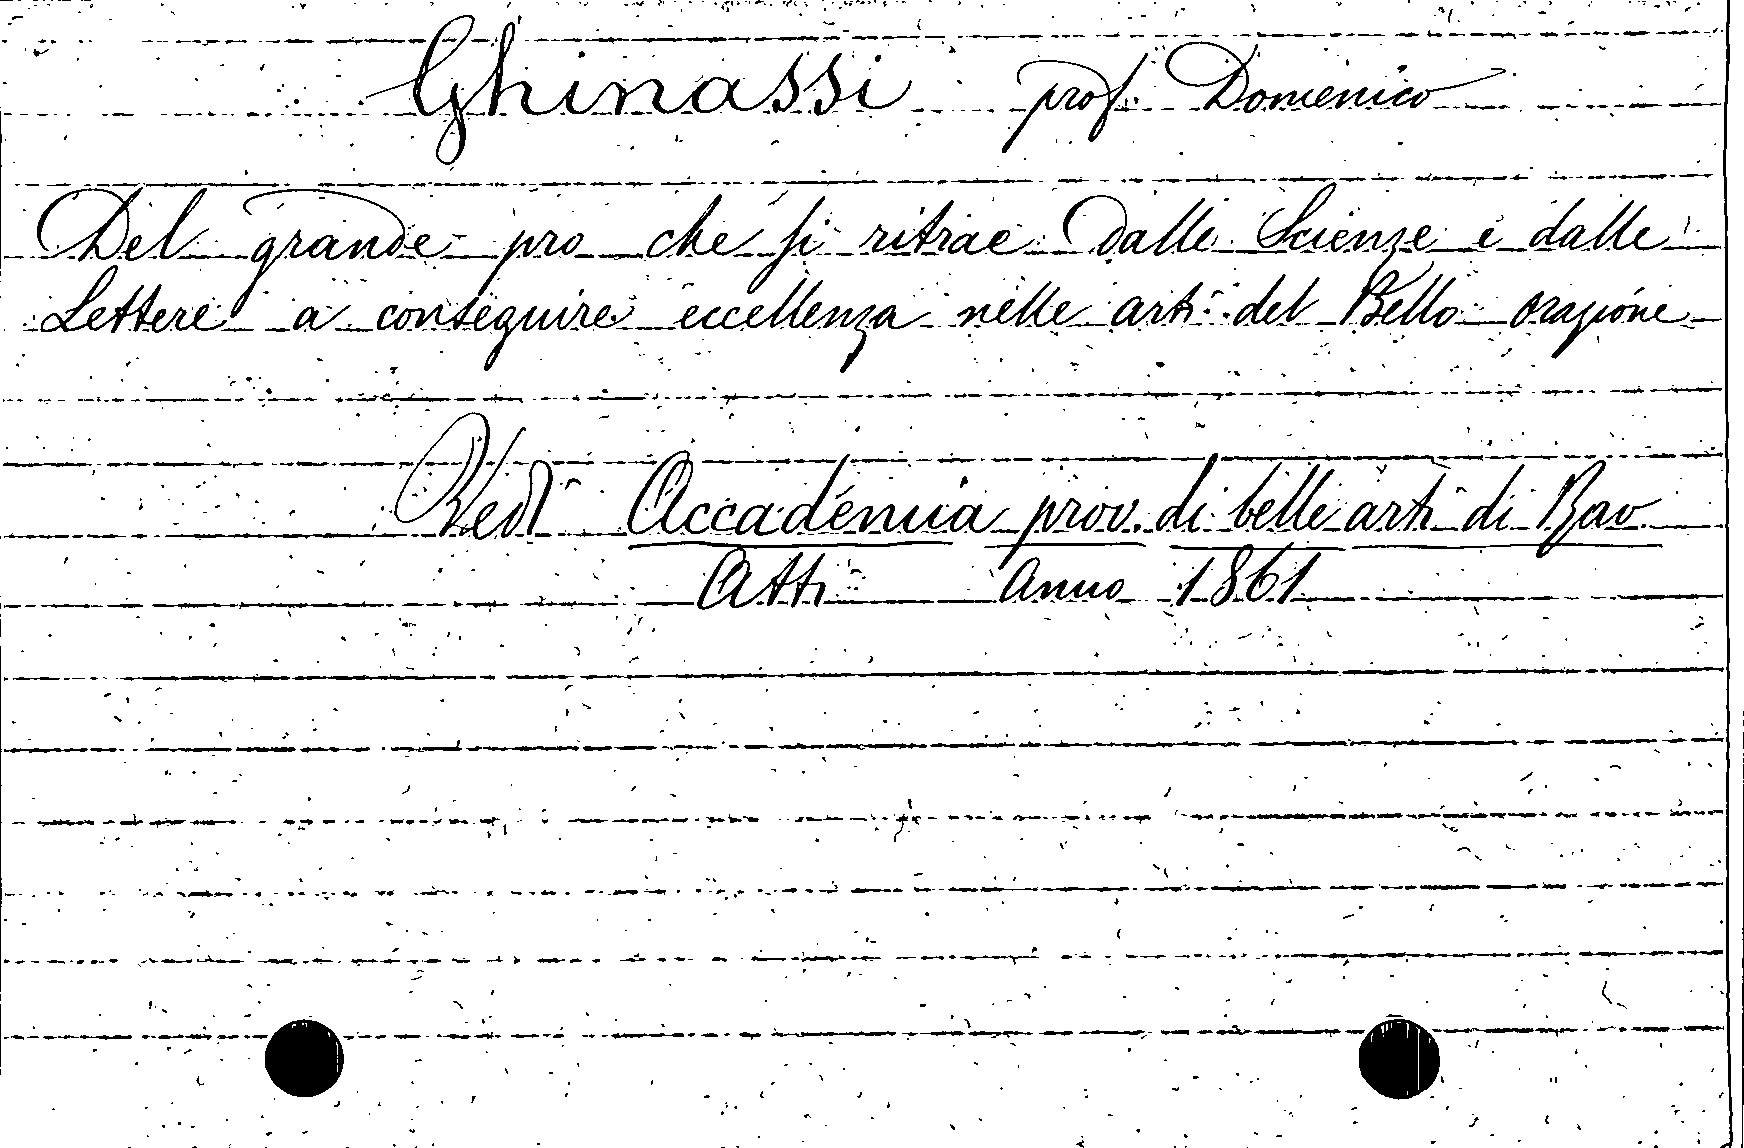 Ghinassi prof. Domenico
Del grande pro che si ritrae dalle Scienze e dalle
Lettere a conseguire eccellenza nelle arti del Bello orazione
Vedi Accademia prov. di belle arti di Rav
Atti Anno 1861